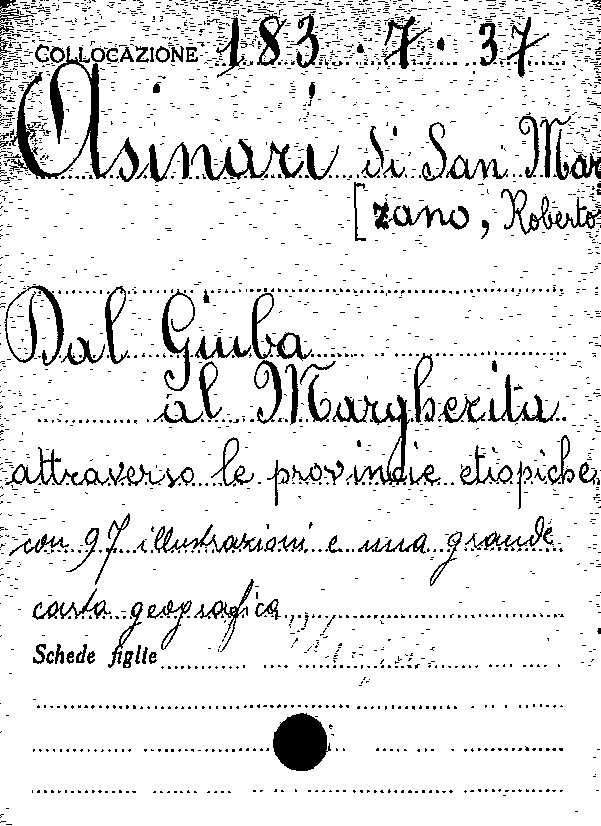 COLLOCAZIONE 183.7.37
Asinari di San Mar
[zano, Roberto
Dal Giuba
al Margherita
attraverso le provincie etiopiche,
con 97 illustrazioni e una grande
carta geografica
Schede figlie